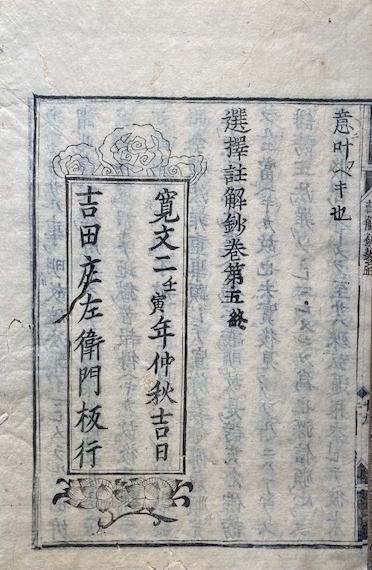 意叶ヘキ也
選擇註解鈔卷第五終
寬文二壬寅年仲秋吉日
吉田庄左衛門板行